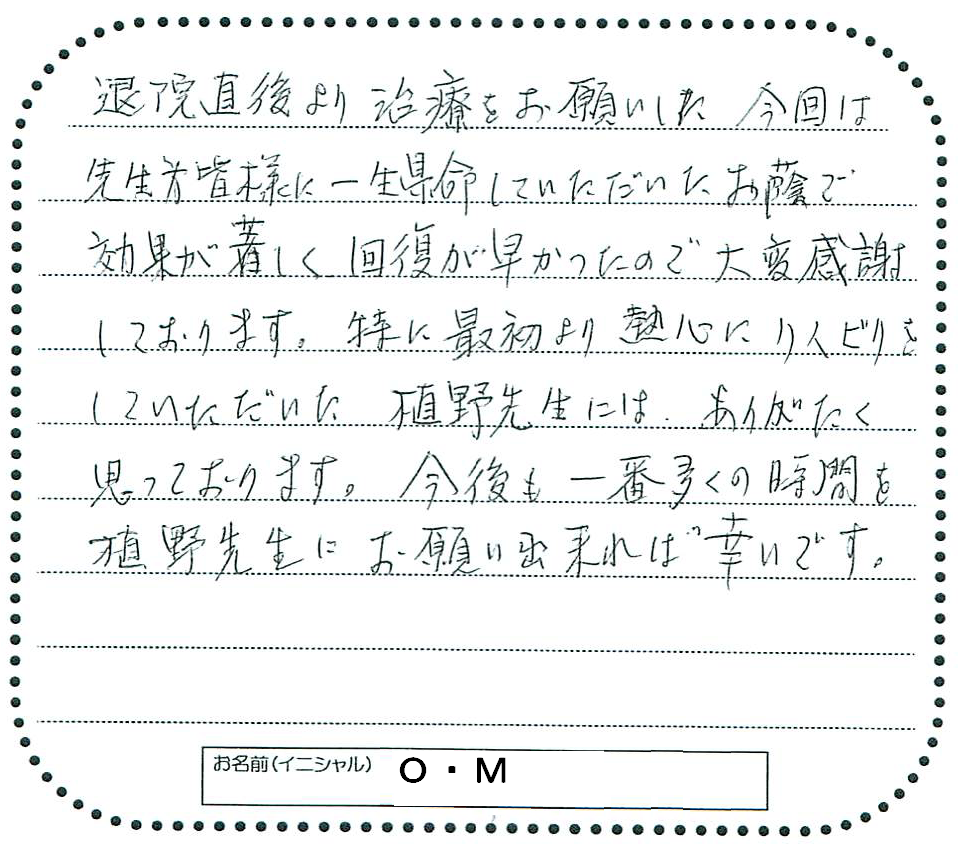 退院直後より治療をお願いした 今回は
先生方皆様に一生県命していただいたお蔭で
効果が著しく回復が早かったので大変感謝
しております。特に最初より熱心にリハビリを
していただいた 植野先生には、ありがたく
思っております。今後も一番多くの時間を
植野先生にお願い出来れば幸いです。
お名前(イニシャル) O・M